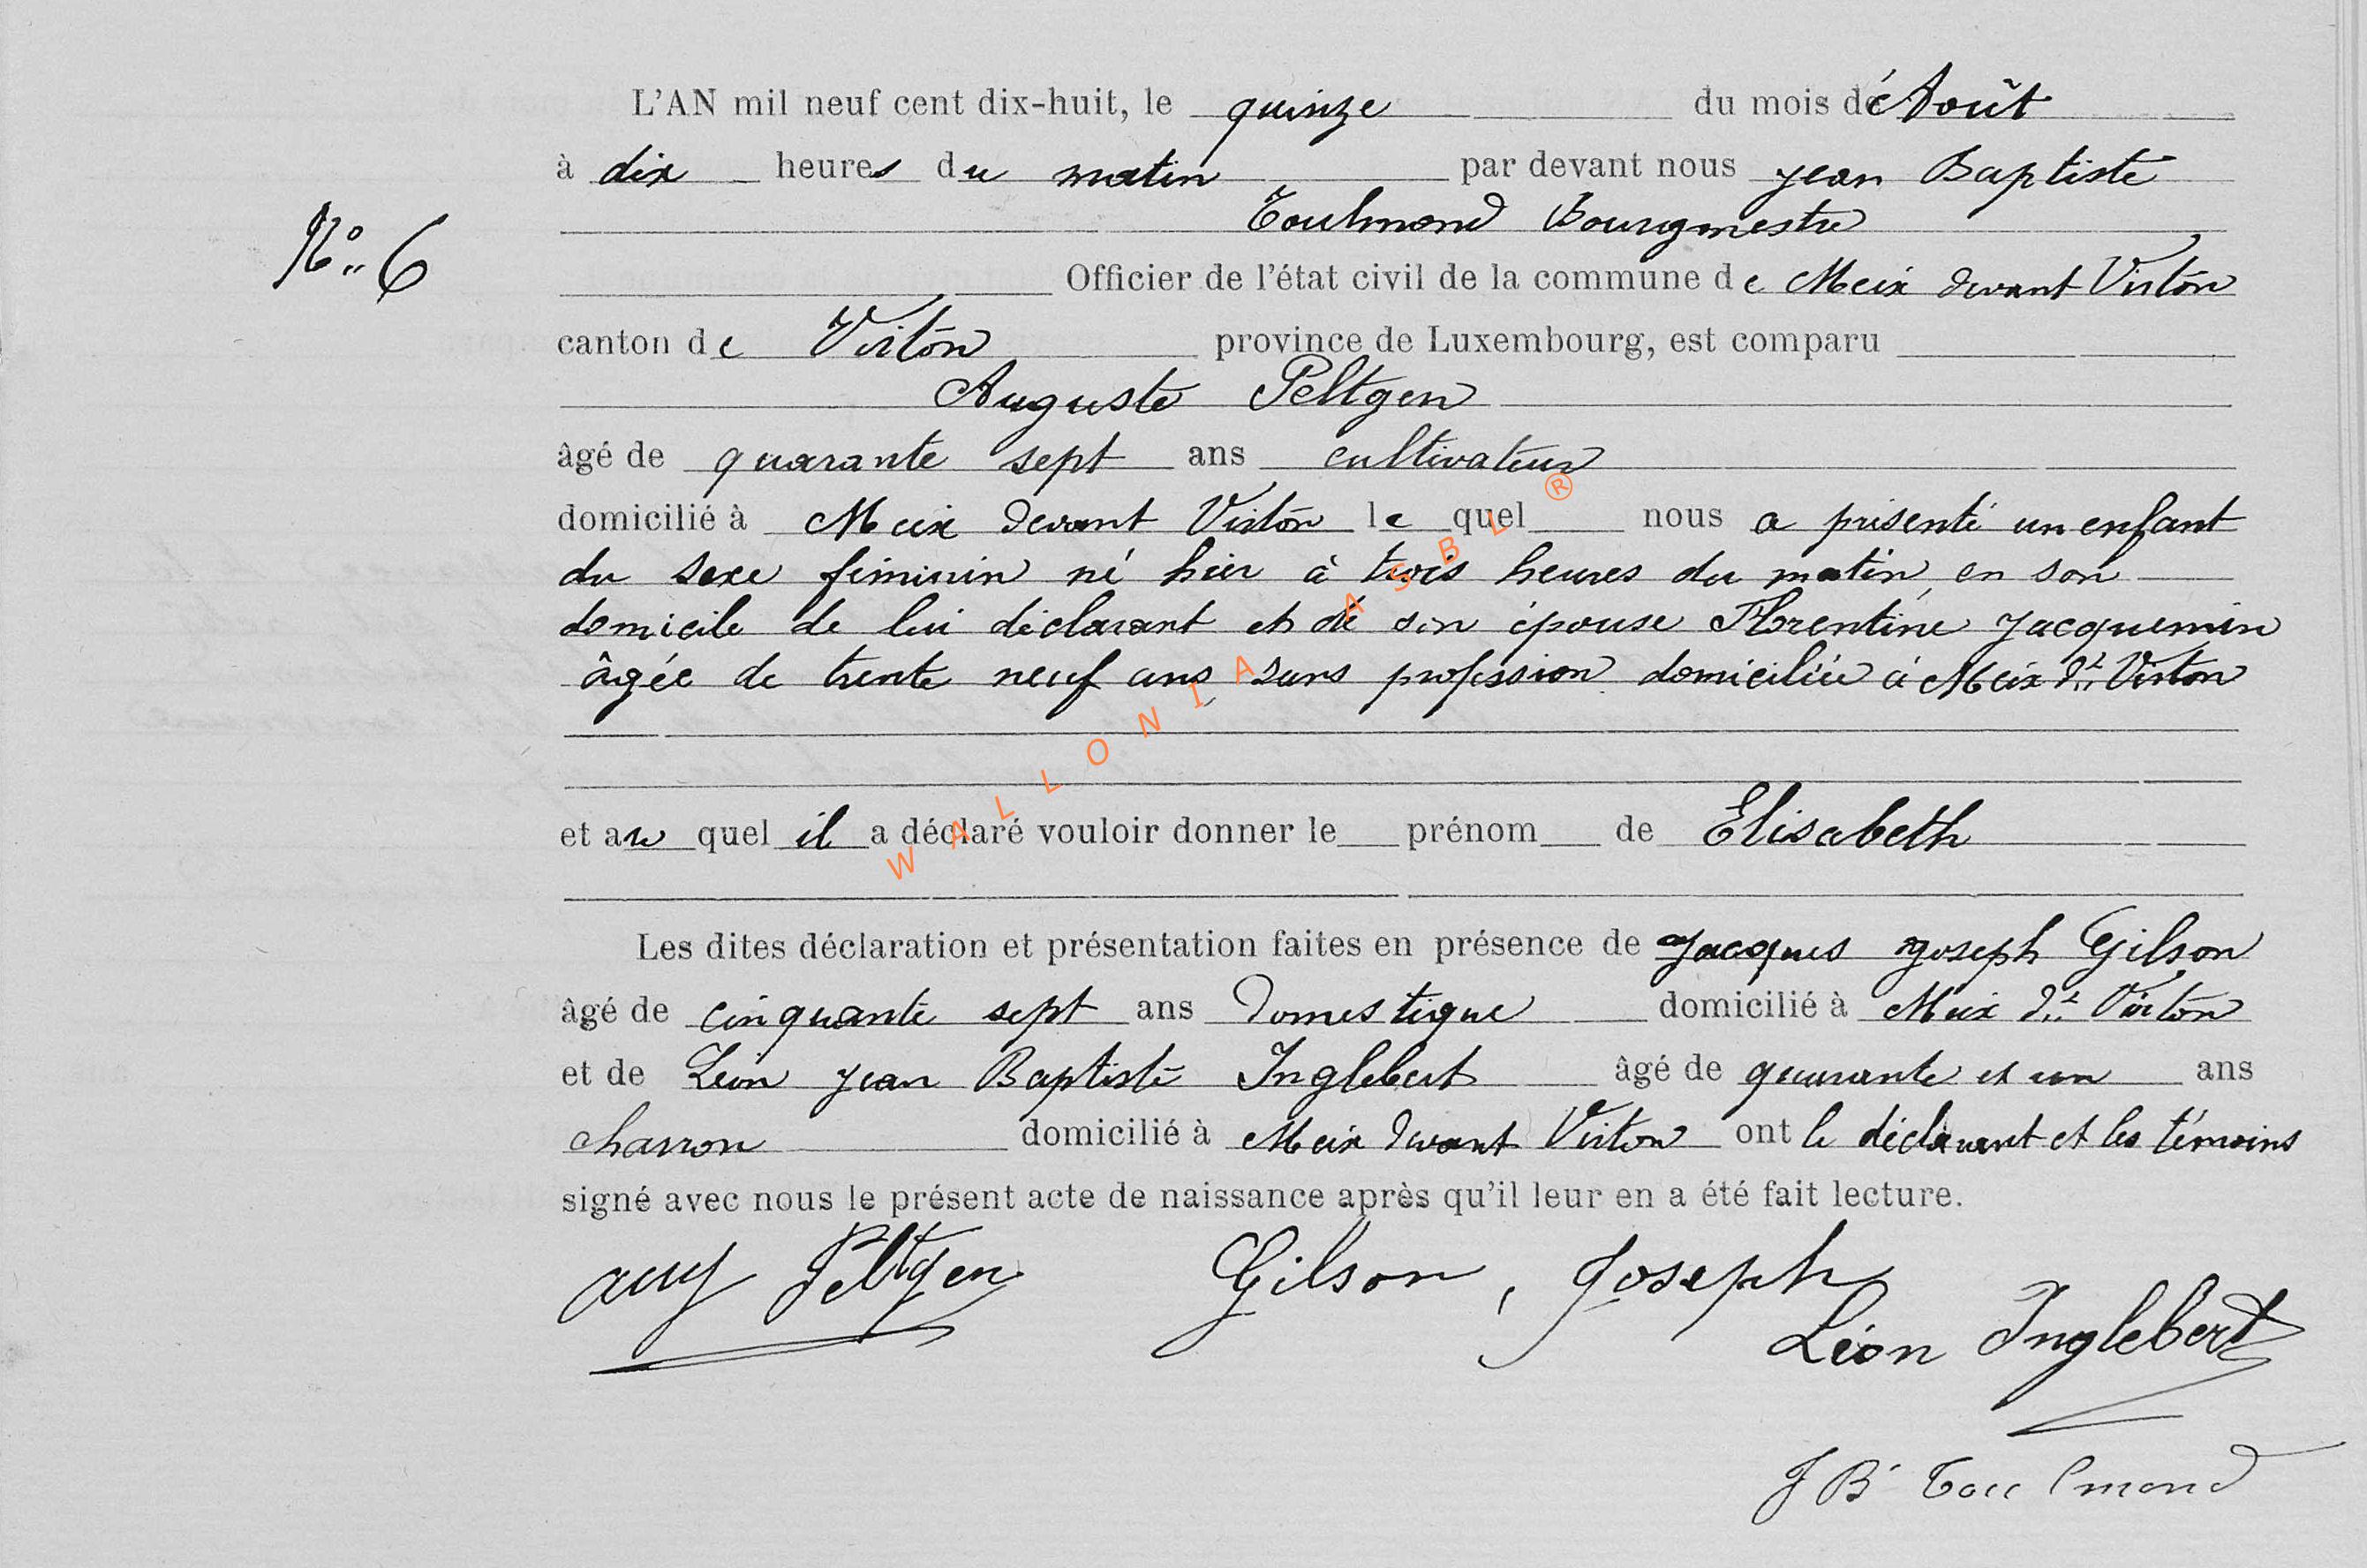 L'AN mil neuf cent dix-huit, le quinze du mois d'Août
à dix heures du matin par devant nous jean Baptiste
Toulmond Bourgmestre
N° 6
Officier de l'état civil de la commune de Meix devant Virton
canton de Virton province de Luxembourg, est comparu
Auguste Peltgen
âgé de quarante sept ans cultivateur
domicilié à Meix devant Virton le quel nous a présenté un enfant
du sexe féminin né hier à trois heures du matin en son
domicile de lui déclarant et de son épouse Florentine Jacquemin
âgée de trente neuf ans sans profession domiciliée à Meix dt Virton
et au quel il a déclaré vouloir donner le prénom de Elisabeth
Les dites déclaration et présentation faites en présence de Jacques Joseph Gilson
âgé de cinquante sept ans Domestique domicilié à Meix dt Virton
et de Léon jean Baptiste Inglebert âgé de quarante et un ans
charron domicilié à Meix devant Virton ont le déclarant et les témoins
signé avec nous le présent acte de naissance après qu'il leur en a été fait lecture.
aug Peltgen Gilson, Joseph
Léon Inglebert
J Bt Toulmond
WALLONIA ASBL ®